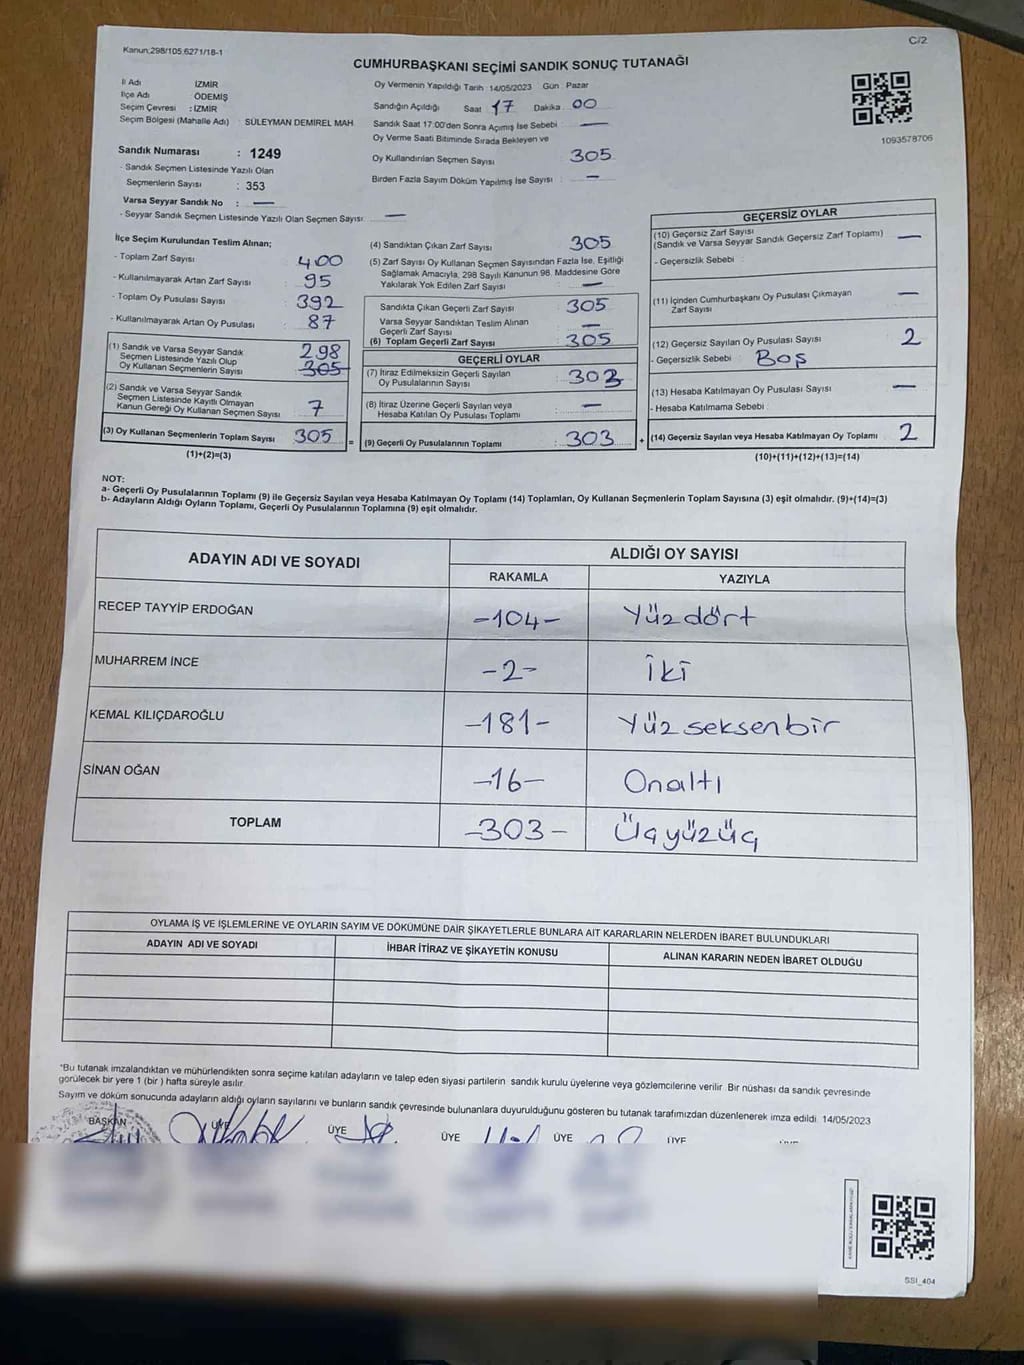 Kanun:298/105,6271/18-1
C/2
CUMHURBAŞKANI SEÇİMİ SANDIK SONUÇ TUTANAĞI
İl Adı İZMİR
İlçe Adı ÖDEMİŞ
Seçim Çevresi : İZMİR
Seçim Bölgesi (Mahalle Adı) : SÜLEYMAN DEMİREL MAH
Sandık Numarası : 1249
- Sandık Seçmen Listesinde Yazılı Olan
Seçmenlerin Sayısı : 353
Varsa Seyyar Sandık No : —
- Seyyar Sandık Seçmen Listesinde Yazılı Olan Seçmen Sayısı : —
Oy Vermenin Yapıldığı Tarih : 14/05/2023 Gün : Pazar
Sandığın Açıldığı Saat 17 Dakika 00
Sandık Saat 17:00'den Sonra Açımış İse Sebebi : —
Oy Verme Saati Bitiminde Sırada Bekleyen ve
Oy Kullandırılan Seçmen Sayısı : 305
Birden Fazla Sayım Döküm Yapılmış İse Sayısı : —
1093578706
İlçe Seçim Kurulundan Teslim Alınan;
- Toplam Zarf Sayısı : 400
- Kullanılmayarak Artan Zarf Sayısı : 95
- Toplam Oy Pusulası Sayısı : 392
- Kullanılmayarak Artan Oy Pusulası : 87
(1) Sandık ve Varsa Seyyar Sandık
Seçmen Listesinde Yazılı Olup
Oy Kullanan Seçmenlerin Sayısı : 298
305
(2) Sandık ve Varsa Seyyar Sandık
Seçmen Listesinde Kayıtlı Olmayan
Kanun Gereği Oy Kullanan Seçmen Sayısı : 7
(3) Oy Kullanan Seçmenlerin Toplam Sayısı : 305 =
(1)+(2)=(3)
(4) Sandıktan Çıkan Zarf Sayısı : 305
(5) Zarf Sayısı Oy Kullanan Seçmen Sayısından Fazla İse, Eşitliği
Sağlamak Amacıyla, 298 Sayılı Kanunun 98. Maddesine Göre
Yakılarak Yok Edilen Zarf Sayısı : —
Sandıkta Çıkan Geçerli Zarf Sayısı : 305
Varsa Seyyar Sandıktan Teslim Alınan
Geçerli Zarf Sayısı : —
(6) Toplam Geçerli Zarf Sayısı : 305
GEÇERLİ OYLAR
(7) İtiraz Edilmeksizin Geçerli Sayılan
Oy Pusulalarının Sayısı : 303
(8) İtiraz Üzerine Geçerli Sayılan veya
Hesaba Katılan Oy Pusulası Toplamı : —
(9) Geçerli Oy Pusulalarının Toplamı : 303 +
GEÇERSİZ OYLAR
(10) Geçersiz Zarf Sayısı
(Sandık ve Varsa Seyyar Sandık Geçersiz Zarf Toplamı) —
- Geçersizlik Sebebi :
(11) İçinden Cumhurbaşkanı Oy Pusulası Çıkmayan
Zarf Sayısı —
(12) Geçersiz Sayılan Oy Pusulası Sayısı 2
- Geçersizlik Sebebi : Boş
(13) Hesaba Katılmayan Oy Pusulası Sayısı —
- Hesaba Katılmama Sebebi :
(14) Geçersiz Sayılan veya Hesaba Katılmayan Oy Toplamı 2
(10)+(11)+(12)+(13)=(14)
NOT:
a- Geçerli Oy Pusulalarının Toplamı (9) ile Geçersiz Sayılan veya Hesaba Katılmayan Oy Toplamı (14) Toplamları, Oy Kullanan Seçmenlerin Toplam Sayısına (3) eşit olmalıdır. (9)+(14)=(3)
b- Adayların Aldığı Oyların Toplamı, Geçerli Oy Pusulalarının Toplamına (9) eşit olmalıdır.
ADAYIN ADI VE SOYADI
ALDIĞI OY SAYISI
RAKAMLA YAZIYLA
RECEP TAYYİP ERDOĞAN -104- Yüzdört
MUHARREM İNCE -2- İki
KEMAL KILIÇDAROĞLU -181- Yüz seksenbir
SİNAN OĞAN -16- Onaltı
TOPLAM -303- Üçyüzüç
OYLAMA İŞ VE İŞLEMLERİNE VE OYLARIN SAYIM VE DÖKÜMÜNE DAİR ŞİKAYETLERLE BUNLARA AİT KARARLARIN NELERDEN İBARET BULUNDUKLARI
ADAYIN ADI VE SOYADI İHBAR İTİRAZ VE ŞİKAYETİN KONUSU ALINAN KARARIN NEDEN İBARET OLDUĞU
*Bu tutanak imzalandıktan ve mühürlendikten sonra seçime katılan adayların ve talep eden siyasi partilerin sandık kurulu üyelerine veya gözlemcilerine verilir. Bir nüshası da sandık çevresinde
görülecek bir yere 1 (bir ) hafta süreyle asılır.
Sayım ve döküm sonucunda adayların aldığı oyların sayılarını ve bunların sandık çevresinde bulunanlara duyurulduğunu gösteren bu tutanak tarafımızdan düzenlenerek imza edildi. 14/05/2023
BAŞKAN ÜYE ÜYE ÜYE ÜYE ÜYE
SSI_404